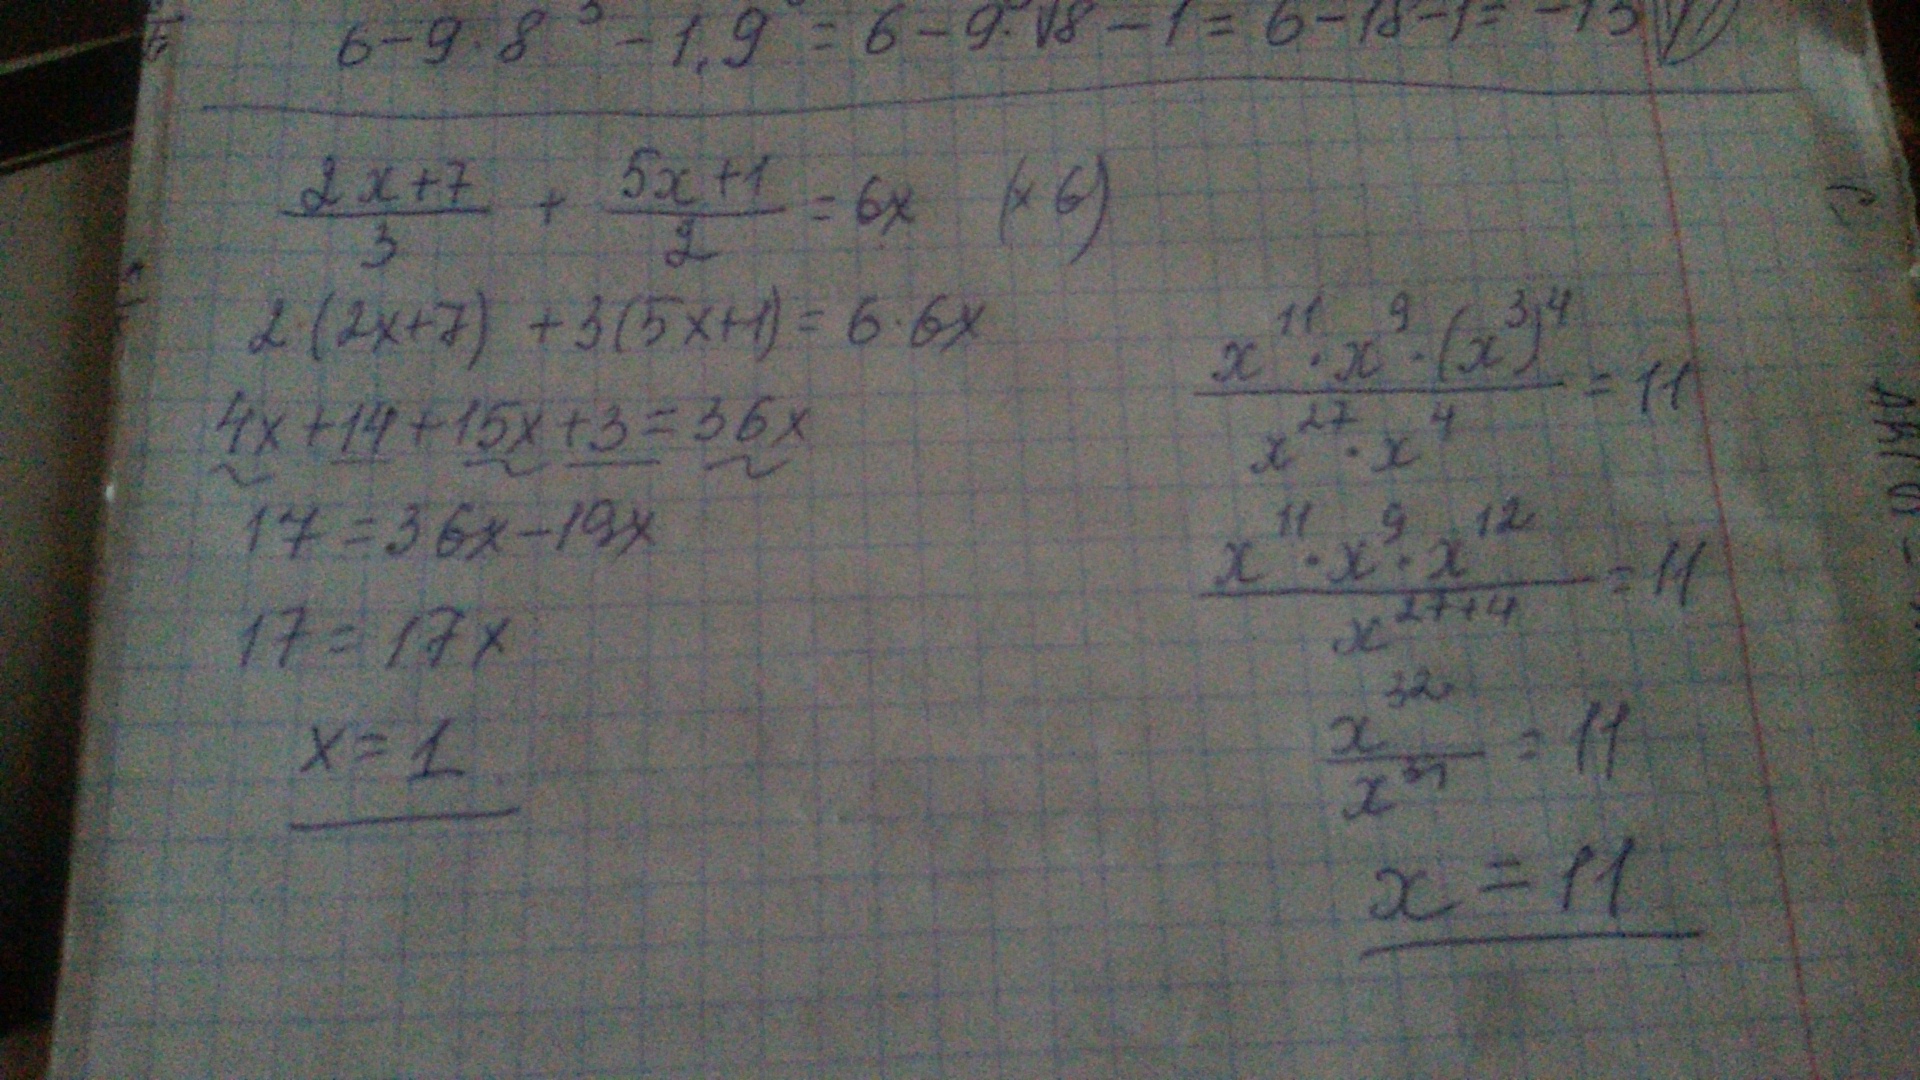 6-9·8³-1,9⁰=6-9·³√8-1=6-18-1=-13
(2x+7)/3 + (5x+1)/2 = 6x (×6)
2·(2x+7)+3(5x+1)=6·6x
4x+14+15x+3=36x
17=36x-19x
17=17x
x=1
(x¹¹·x⁹·(x³)⁴)/(x²⁷·x⁴)=11
(x¹¹·x⁹·x¹²)/x²⁷⁺⁴=11
x³²/x³¹=11
x=11